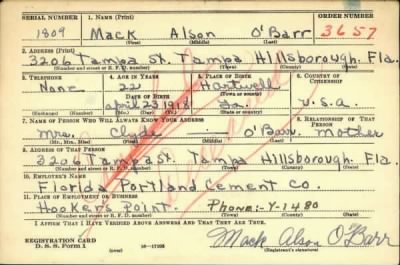 SERIAL NUMBER 1. NAME (Print) ORDER NUMBER
1809 Mack Alson O'Barr 3657
(First) (Middle) (Last)
2. ADDRESS (Print)
3206 Tampa St. Tampa Hillsborough Fla.
(Number and street or R. F. D. number) (Town) (County) (State)
3. TELEPHONE 4. AGE IN YEARS 5. PLACE OF BIRTH 6. COUNTRY OF CITIZENSHIP
None 22 Hartwell
DATE OF BIRTH (Town or county)
April 23 1918 Ga. U.S.A.
(Exchange) (Number) (Mo.) (Day) (Yr.) (State or country)
7. NAME OF PERSON WHO WILL ALWAYS KNOW YOUR ADDRESS 8. RELATIONSHIP OF THAT PERSON
Mrs. Clyde O'Barr Mother
(Mr., Mrs., Miss) (First) (Middle) (Last)
9. ADDRESS OF THAT PERSON
3206 Tampa St. Tampa Hillsborough Fla.
(Number and street or R. F. D. number) (Town) (County) (State)
10. EMPLOYER'S NAME
Florida Portland Cement Co.
11. PLACE OF EMPLOYMENT OR BUSINESS
Hookers Point. Phone:-Y-1480
(Number and street or R. F. D. number) (Town) (County) (State)
I AFFIRM THAT I HAVE VERIFIED ABOVE ANSWERS AND THAT THEY ARE TRUE.
REGISTRATION CARD
D. S. S. Form 1 16—17105 Mack Alson O'Barr